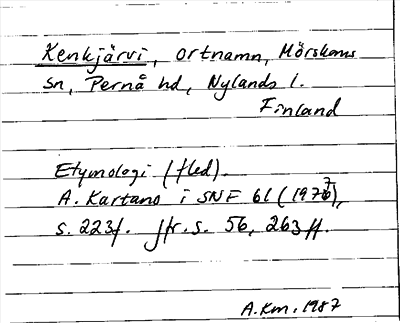 Kenkjärvi, ortnamn, Mörskoms
sn, Pernå hd, Nylands l.
Finland
Etymologi. (fled).
A. Kartano i SNF 61 (1977),
s. 223f. Jfr. s. 56, 263 ff.
A.Km. 1987